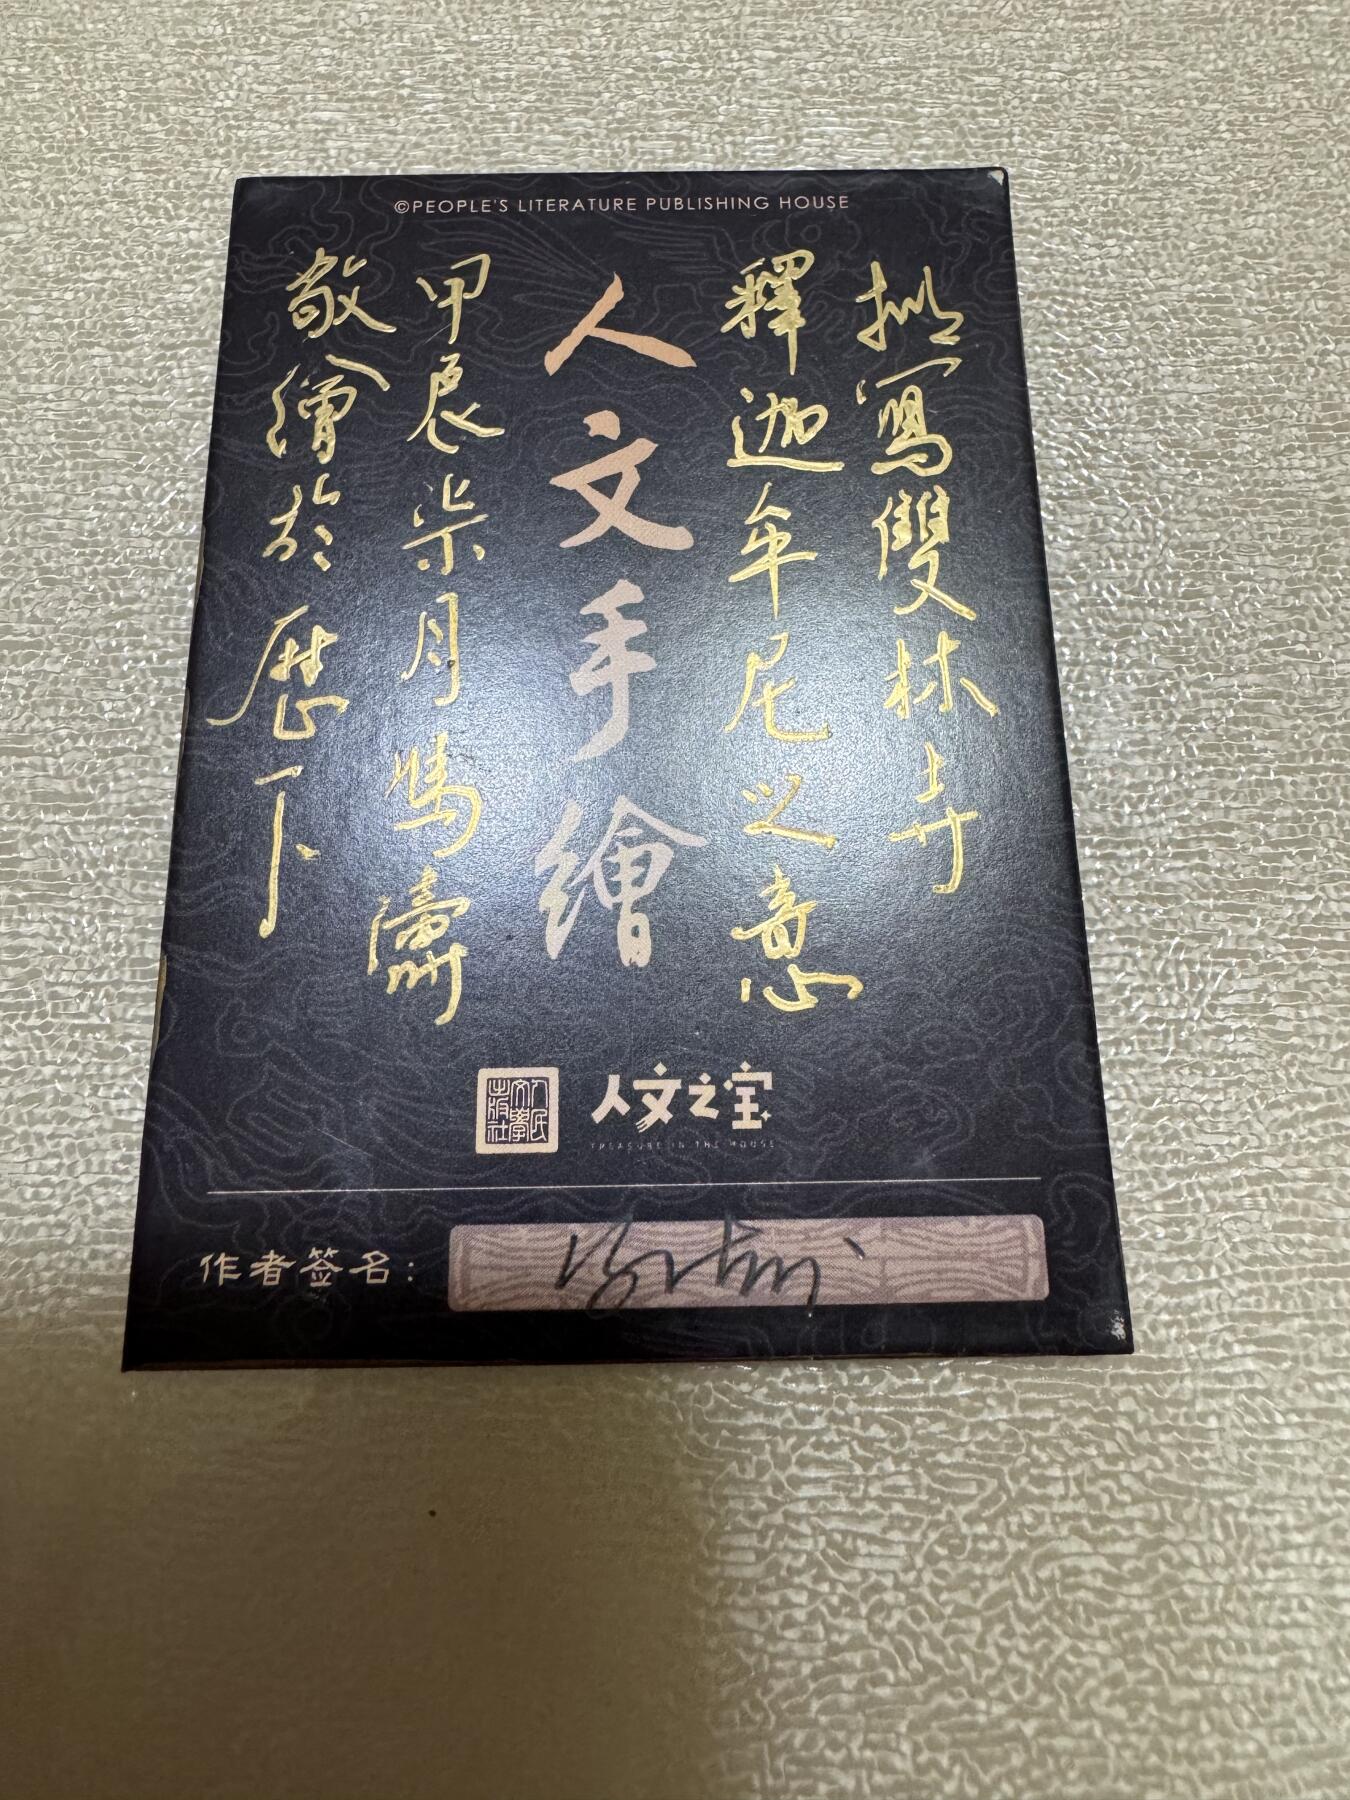 ©PEOPLE'S LITERATURE PUBLISHING HOUSE
拟寫雙林寺
釋迦牟尼之意
人文手繪
甲辰柒月馮濤
敬繪於歷下
人民文學出版社
人文之宝
TREASURE IN THE HOUSE
作者签名：